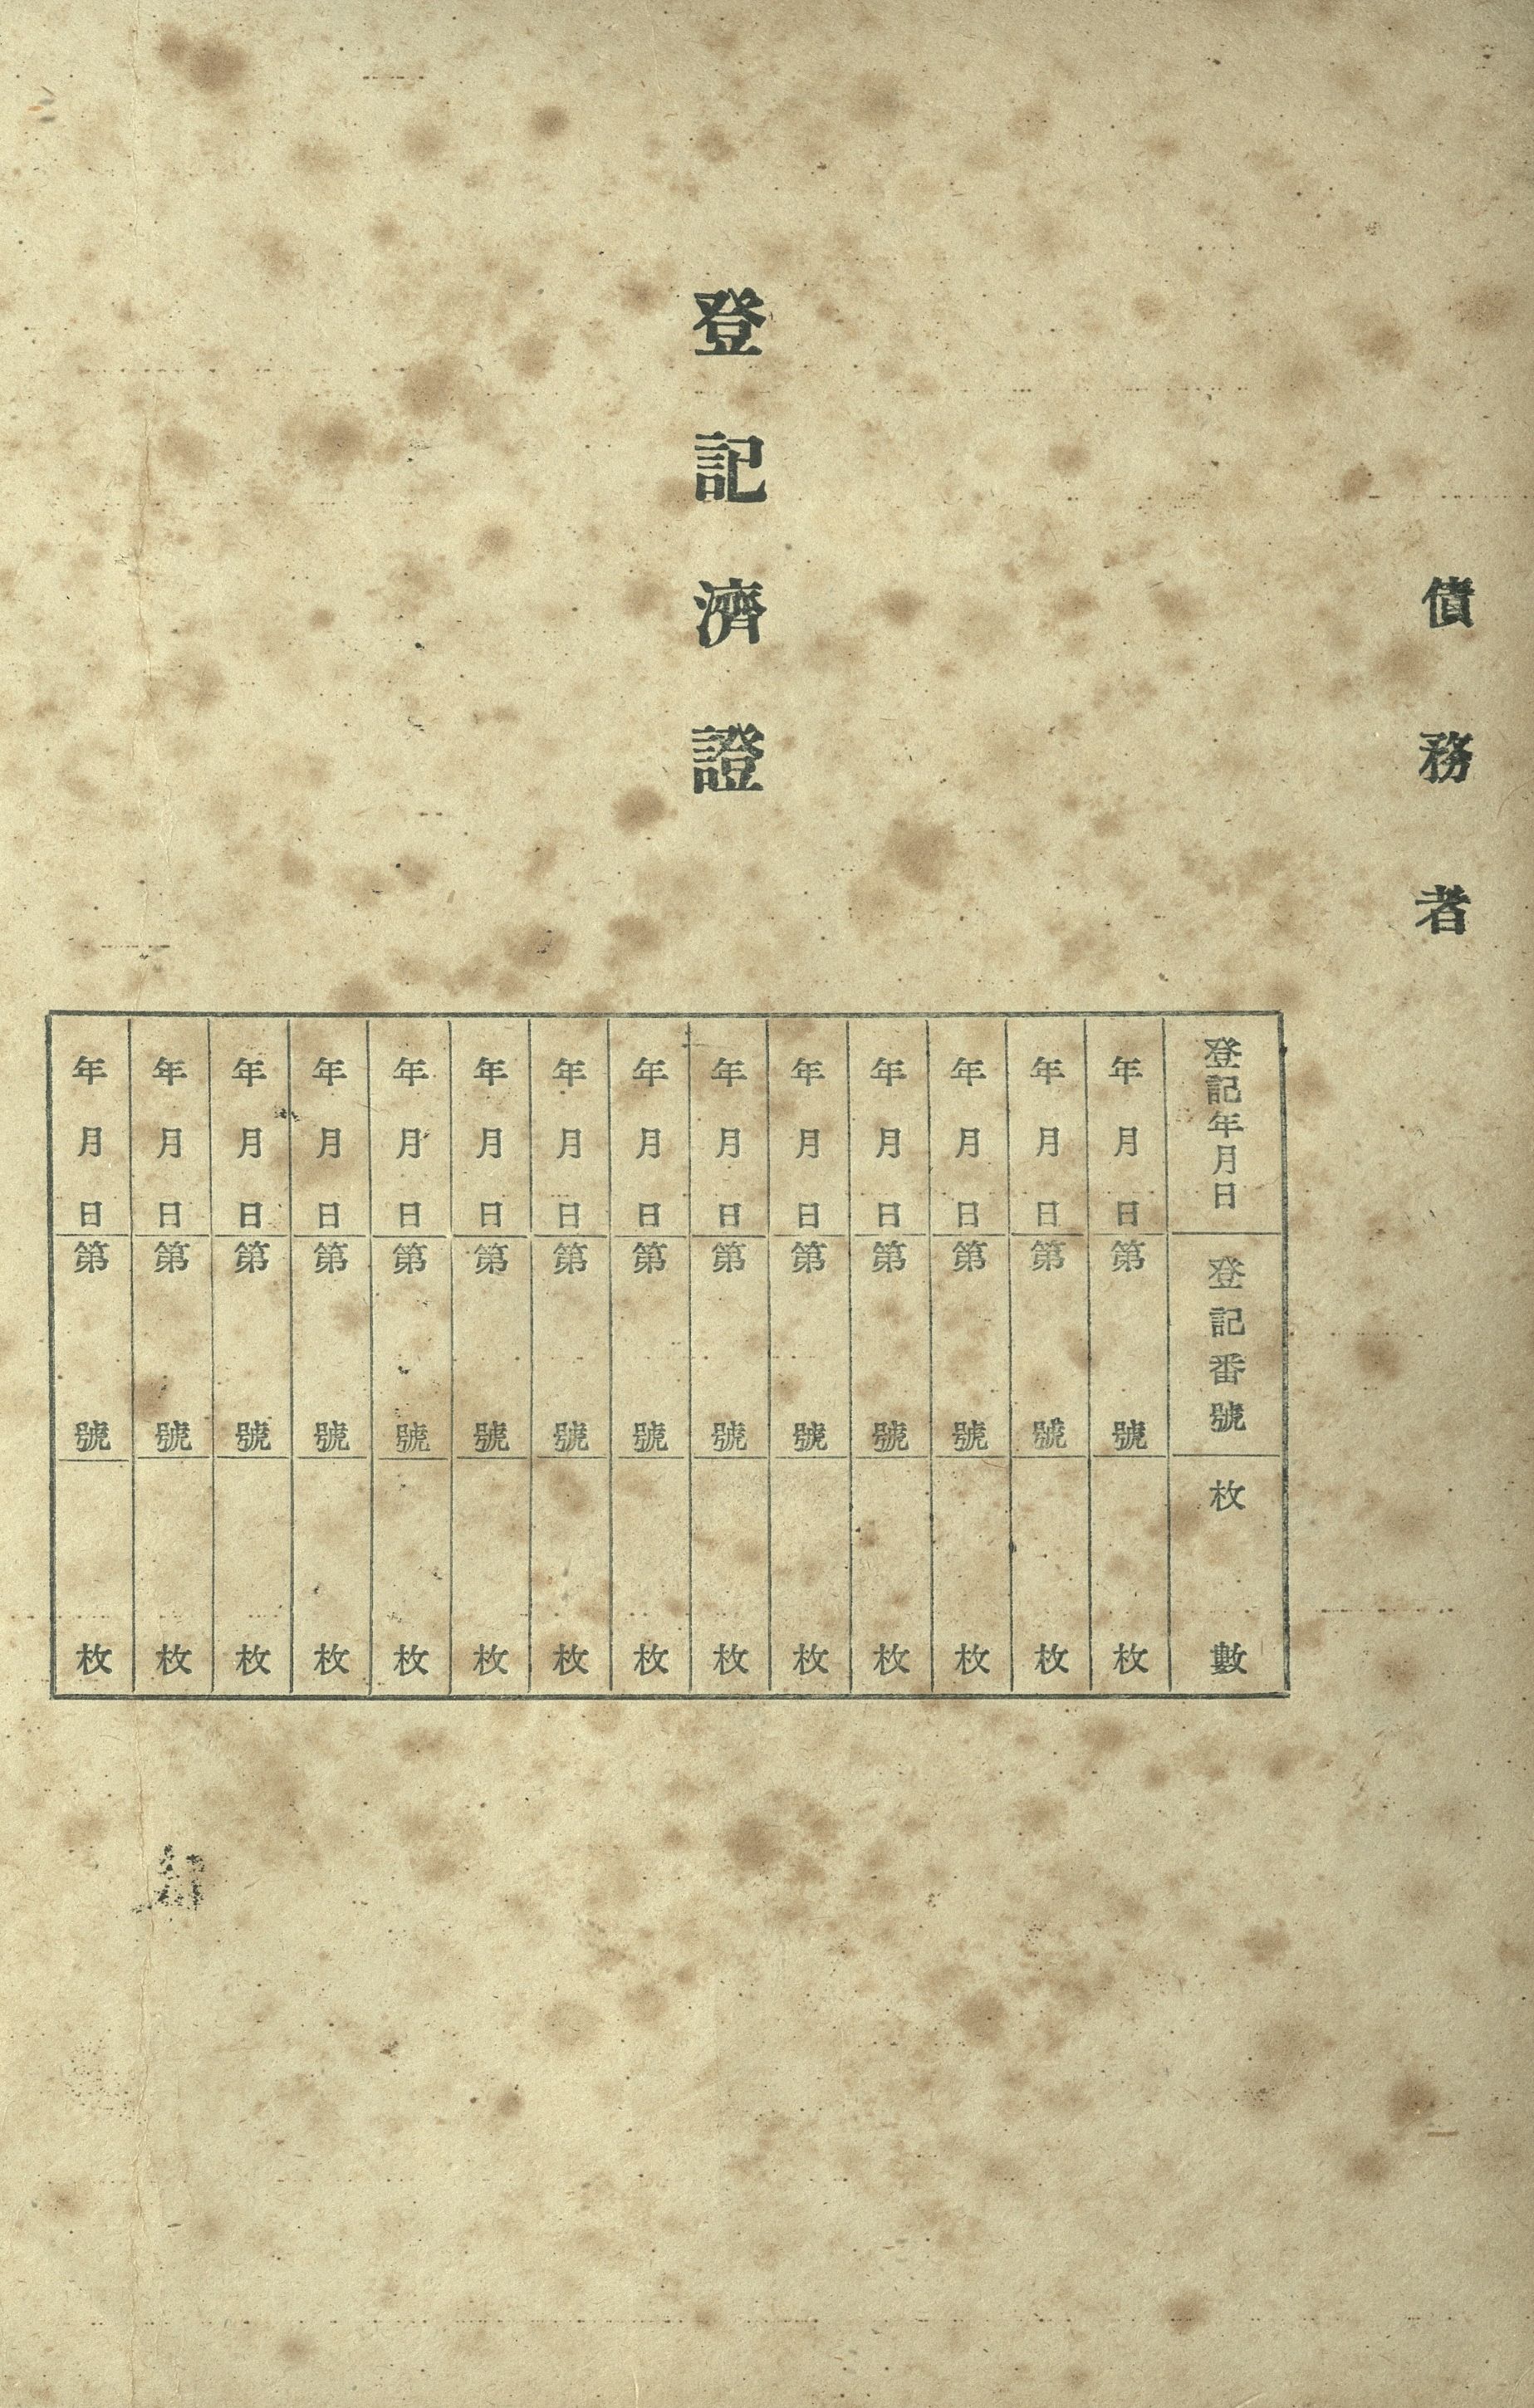 債務者
登記濟證
登記年月日 登記番號 枚數
年月日 第號 枚
年月日 第號 枚
年月日 第號 枚
年月日 第號 枚
年月日 第號 枚
年月日 第號 枚
年月日 第號 枚
年月日 第號 枚
年月日 第號 枚
年月日 第號 枚
年月日 第號 枚
年月日 第號 枚
年月日 第號 枚
年月日 第號 枚